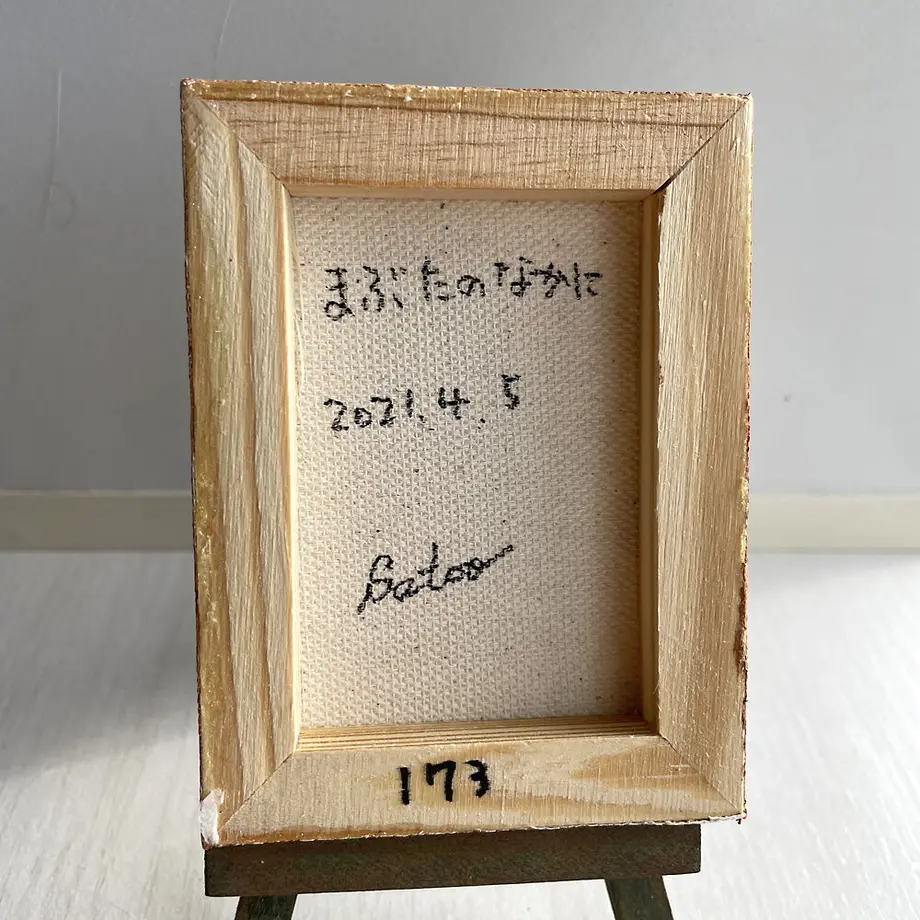 まぶたのなかに
2021.4.5
Satoo
173